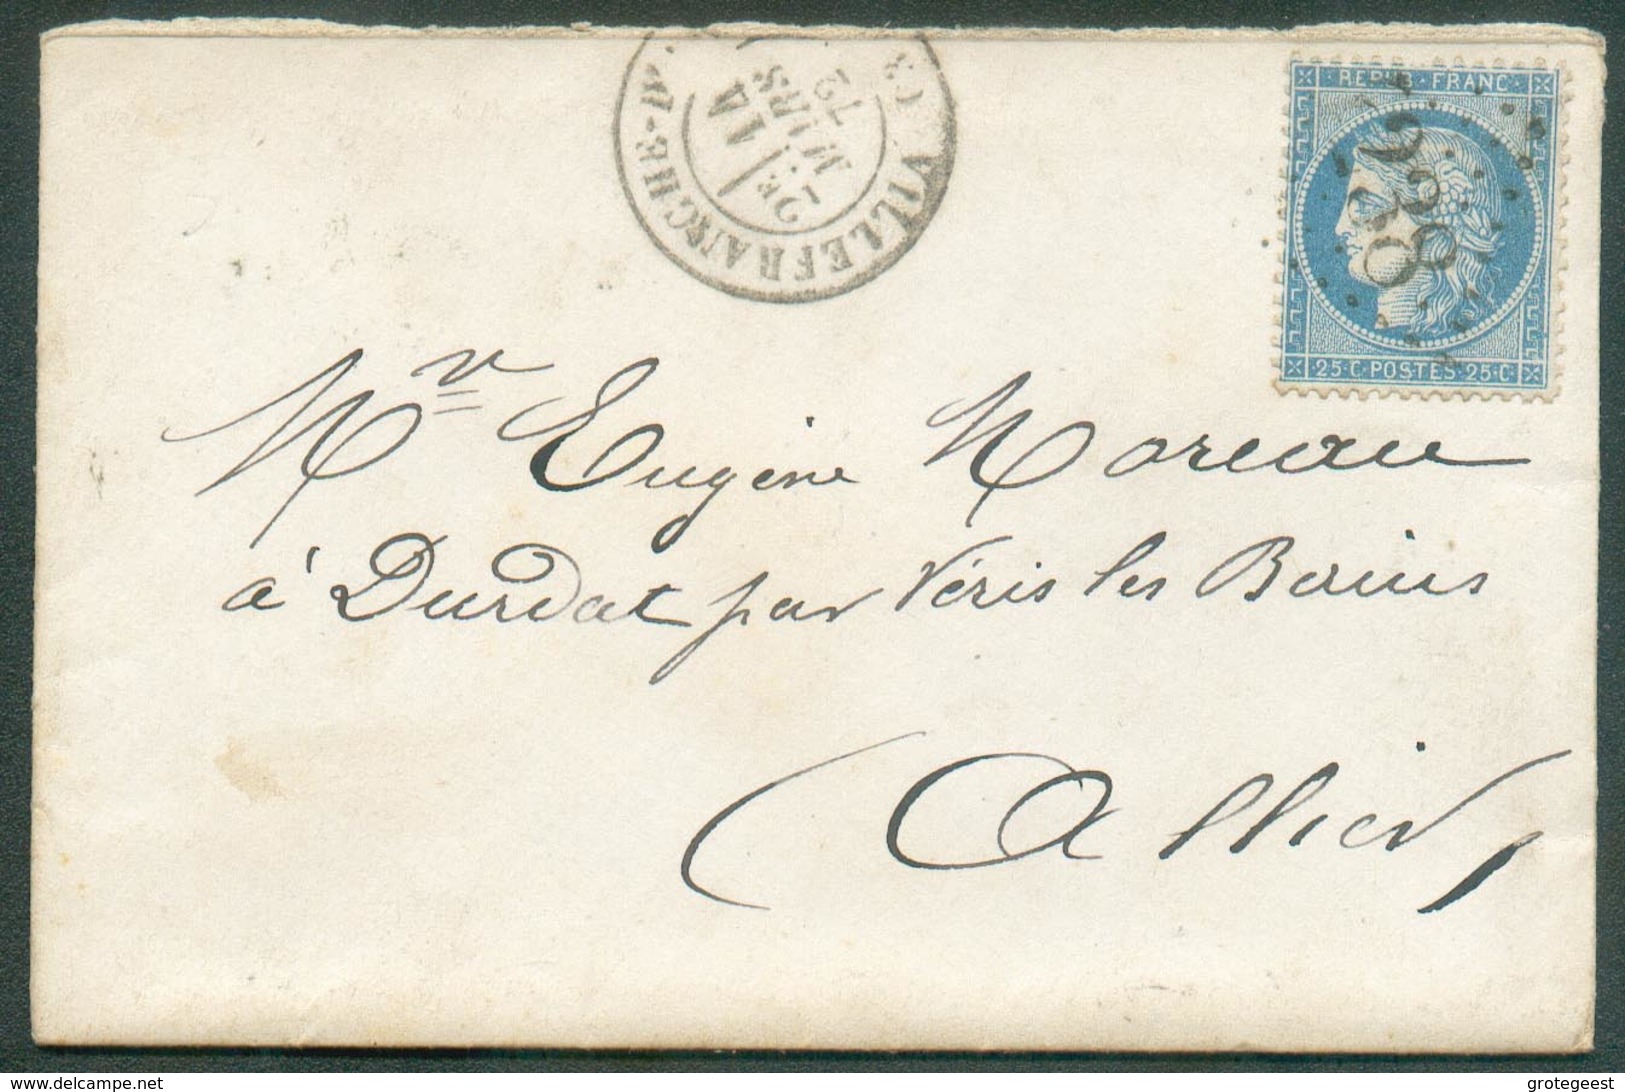 VILLEFRANCHE-D
2E
11
MARS
72
REPUB · FRANC
25 · C · POSTES · 25 · C
Mr Eugène Moreau
à Durdat par Néris les Bains
Allier
www.delcampe.net
grotegeest